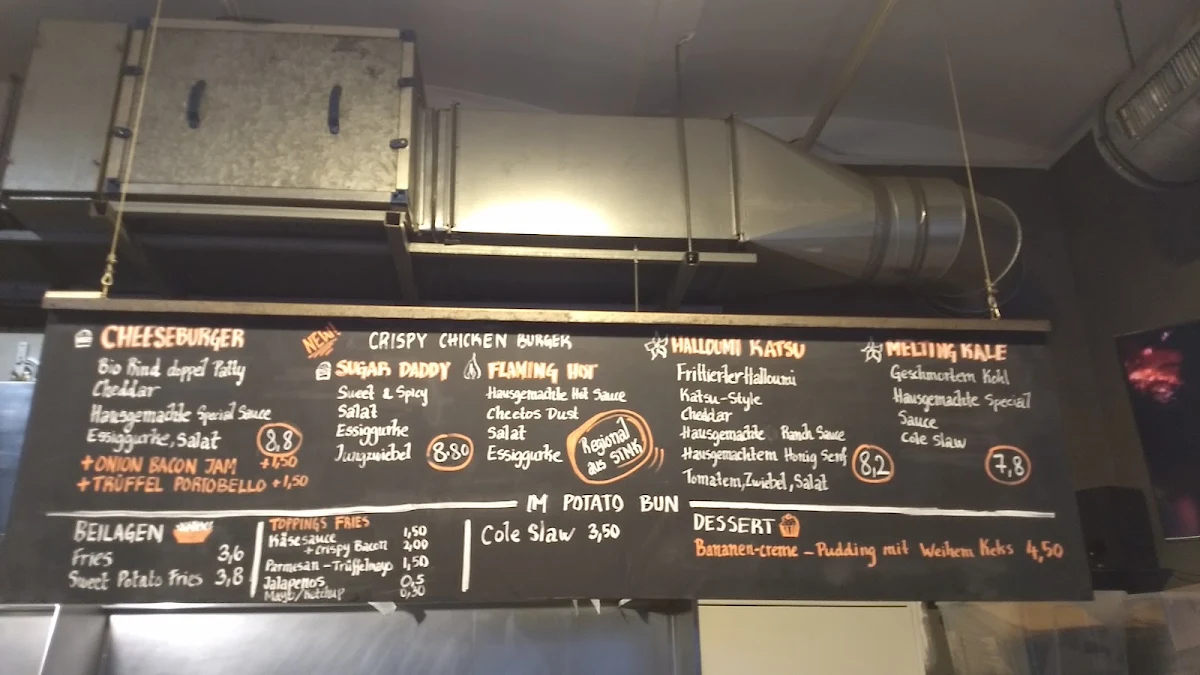 CHEESEBURGER
Bio Rind doppel Patty
Cheddar
Hausgemachte Special Sauce
Essiggurke, Salat
8,8
+ONION BACON JAM +1,50
+TRÜFFEL PORTOBELLO +1,50
NEW!
CRISPY CHICKEN BURGER
SUGAR DADDY
Sweet & Spicy
Salat
Essiggurke
Jungzwiebel
8.80
FLAMING HOT
Hausgemachte Hot Sauce
Cheetos Dust
Salat
Essiggurke
Regional
aus STMK
HALLOUMI KATSU
Frittierter Halloumi
Katsu-Style
Cheddar
Hausgemachte Ranch Sauce
Hausgemachtem Honig Senf
Tomatem, Zwiebel, Salat
8,2
MELTING KALE
Geschmortem Kohl
Hausgemachte Special
Sauce
Cole Slaw
7,8
IM POTATO BUN
BEILAGEN
Fries 3,6
Sweet Potato Fries 3,8
TOPPINGS FRIES
Käsesauce 1,50
+Crispy Bacon 2,00
Parmesan-Trüffelmayo 1,50
Jalapenos 0,5
Mayo/Ketchup 0,30
Cole Slaw 3,50
DESSERT
Bananen-creme-Pudding mit Weihem Keks 4,50